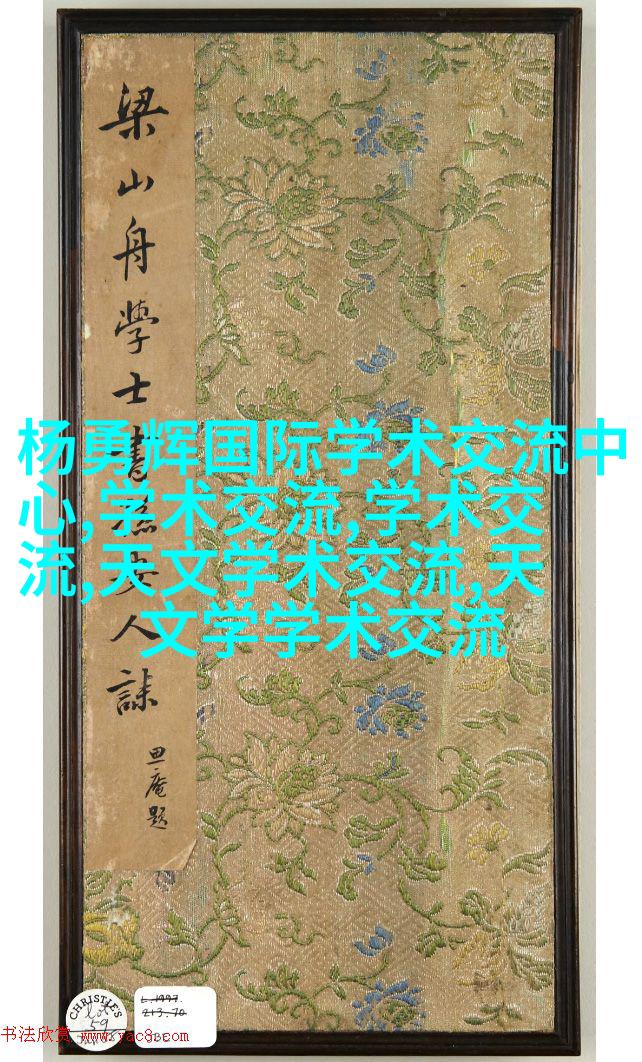 梁山舟學士書孫安人誄
庵題
杨勇辉国际学术交流中
心,学术交流,学术交
流,天文学术交流,天
文学学术交流
CHRISTIE'S
Lot
59
L.1997.
213.70
书法欣赏 www.yac8.com